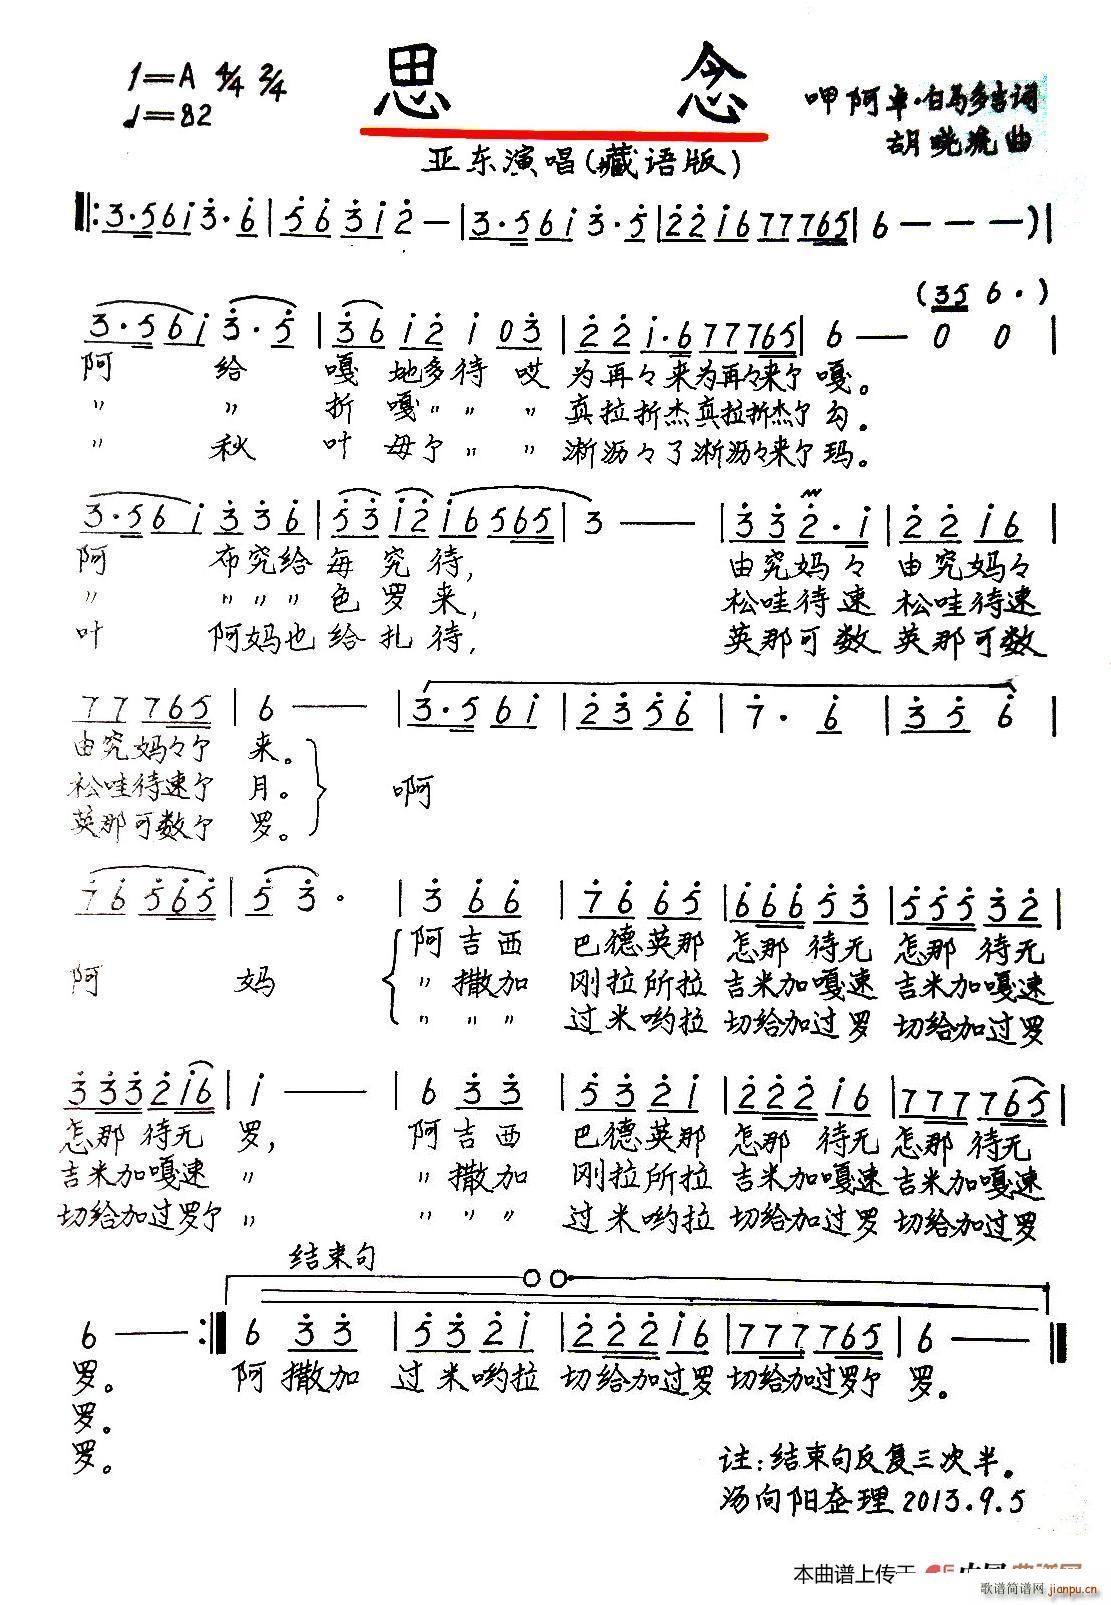 思 念
1=A 4/4 2/4
♩=82
呷阿卓·白马多吉词
胡晓流曲
亚东演唱(藏语版)
‖:3·561̇3̇·6̇|5̇6̇3̇1̇2̇—|3·561̇3̇·5̇|2̇2̇1̇677765|6———)|
(35 6·)
3·561̇ 3̇·5̇|3̇6 1̇2̇ 1̇ 03̇|2̇2̇1̇·677765|6— 0 0|
阿 给 嘎 地多待 哎 为再々来为再々来尔 嘎。
〃 〃 折 嘎〃 〃 〃 真拉折杰真拉折杰尔 勾。
〃 秋 叶 母尔〃 〃 淅沥々了淅沥々来尔 玛。
3·561̇ 3̇3̇6̇|5̇3̇1̇2̇1̇6565|3——|3̇3̇2̇·1̇|2̇2̇1̇6|
阿 布究给 每 究 待, 由究妈々 由究妈々
〃 〃〃〃 色 罗 来, 松哇待速 松哇待速
叶 阿妈也 给 扎 待, 英那可数 英那可数
77765|6——|3·561̇|2̇3̇5̇6̇|7̇·6̇|3̇5̇6̇|
由究妈々尔 来。
松哇待速尔 月。 啊
英那可数尔 罗。
7̇6̇5̇6̇5̇|5̇3̇·|3̇6̇6̇|7̇6̇6̇5̇|6̇6̇6̇5̇3̇|5̇5̇5̇3̇2̇|
阿吉西 巴德英那 怎那 待无 怎那 待无
阿 妈 〃 撒加 刚拉所拉 吉米加嘎速 吉米加嘎速
〃 〃 〃 过米哟拉 切给加过罗 切给加过罗
3̇3̇3̇2̇1̇6|1̇——|63̇3̇|5̇3̇2̇1̇|2̇2̇2̇1̇6|777765|
怎那 待无 罗, 阿吉西 巴德英那 怎那 待无 怎那 待无
吉米加嘎速 〃 〃 撒加 刚拉所拉 吉米加嘎速 吉米加嘎速
切给加过罗尔 〃 〃 〃 〃 过米哟拉 切给加过罗 切给加过罗
结束句
6——:‖63̇3̇|5̇3̇2̇1̇|2̇2̇2̇1̇6|777765|6——‖
罗。 阿 撒加 过 米哟拉 切给加过罗 切给加过罗尔 罗。
罗。
罗。
注:结束句反复三次半。
汤向阳整理2013.9.5
本曲谱上传于
歌谱简谱网 jianpu.cn